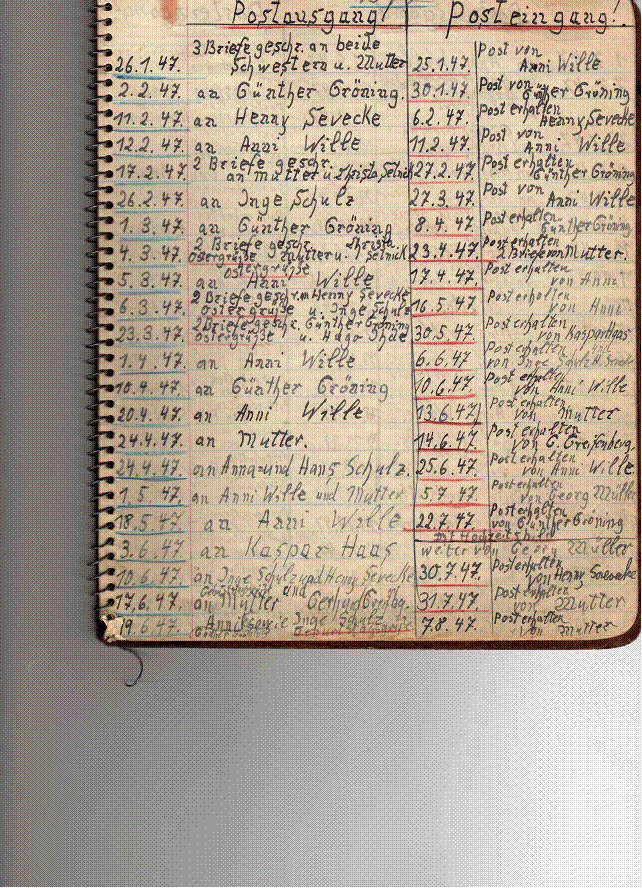 Postausgang!
26.1.47. 3 Briefe geschr. an beide
Schwestern u. Mutter
2.2.47. an Günther Gröning.
11.2.47. an Henny Sevecke
12.2.47. an Anni Wille
17.2.47. 2 Briefe geschr.
an Mutter u. Christa Selnick
26.2.47. an Inge Schulz
1.3.47. an Günther Gröning
4.3.47. 2 Briefe geschr. Christa
Ostergrüße Mutter u. Selnick
Ostergrüße
5.3.47. an Anni Wille
6.3.47. 2 Briefe geschr. an Henny Sevecke
Ostergrüße u. Inge Schulz
23.3.47. 2 Briefe geschr. Günther Gröning
Ostergrüße u. Hugo Ihde
1.4.47. an Anni Wille
10.4.47. an Günther Gröning
20.4.47. an Anni Wille
24.4.47. an Mutter.
24.4.47. an Anna und Hans Schulz.
1.5.47. an Anni Wille und Mutter
18.5.47. an Anni Wille
3.6.47. an Kaspar Haas
10.6.47. an Inge Schulz und Henny Sevecke
17.6.47. an Mutter und
19.6.47. Anni sowie Inge Schulz
Posteingang!
25.1.47. Post von
Anni Wille
30.1.47. Post von
Günther Gröning
6.2.47. Post erhalten
Henny Sevecke
11.2.47. Post von
Anni Wille
27.2.47. Post erhalten
Günther Gröning
27.3.47. Post von
Anni Wille
8.4.47. Post erhalten
Günther Gröning
23.4.47. Post erhalten
2 Briefe von Mutter.
17.4.47. Post erhalten
von Anni
16.5.47. Post erhalten
von Anni
30.5.47. Post erhalten
von Kaspar Haas
6.6.47. Post erhalten
von Inge Schulz
10.6.47. Post erhalten
von Anni Wille
13.6.47. Post erhalten
von Mutter
14.6.47. Post erhalten
von G. Greifenberg.
25.6.47. Post erhalten
von Anni Wille
5.7.47. Post erhalten
von Georg Müller
22.7.47. Post erhalten
von Günther Gröning
weiter von Georg Müller
30.7.47. Post erhalten
von Henny Sevecke
31.7.47. Post erhalten
von Mutter
7.8.47. Post erhalten
von Mutter